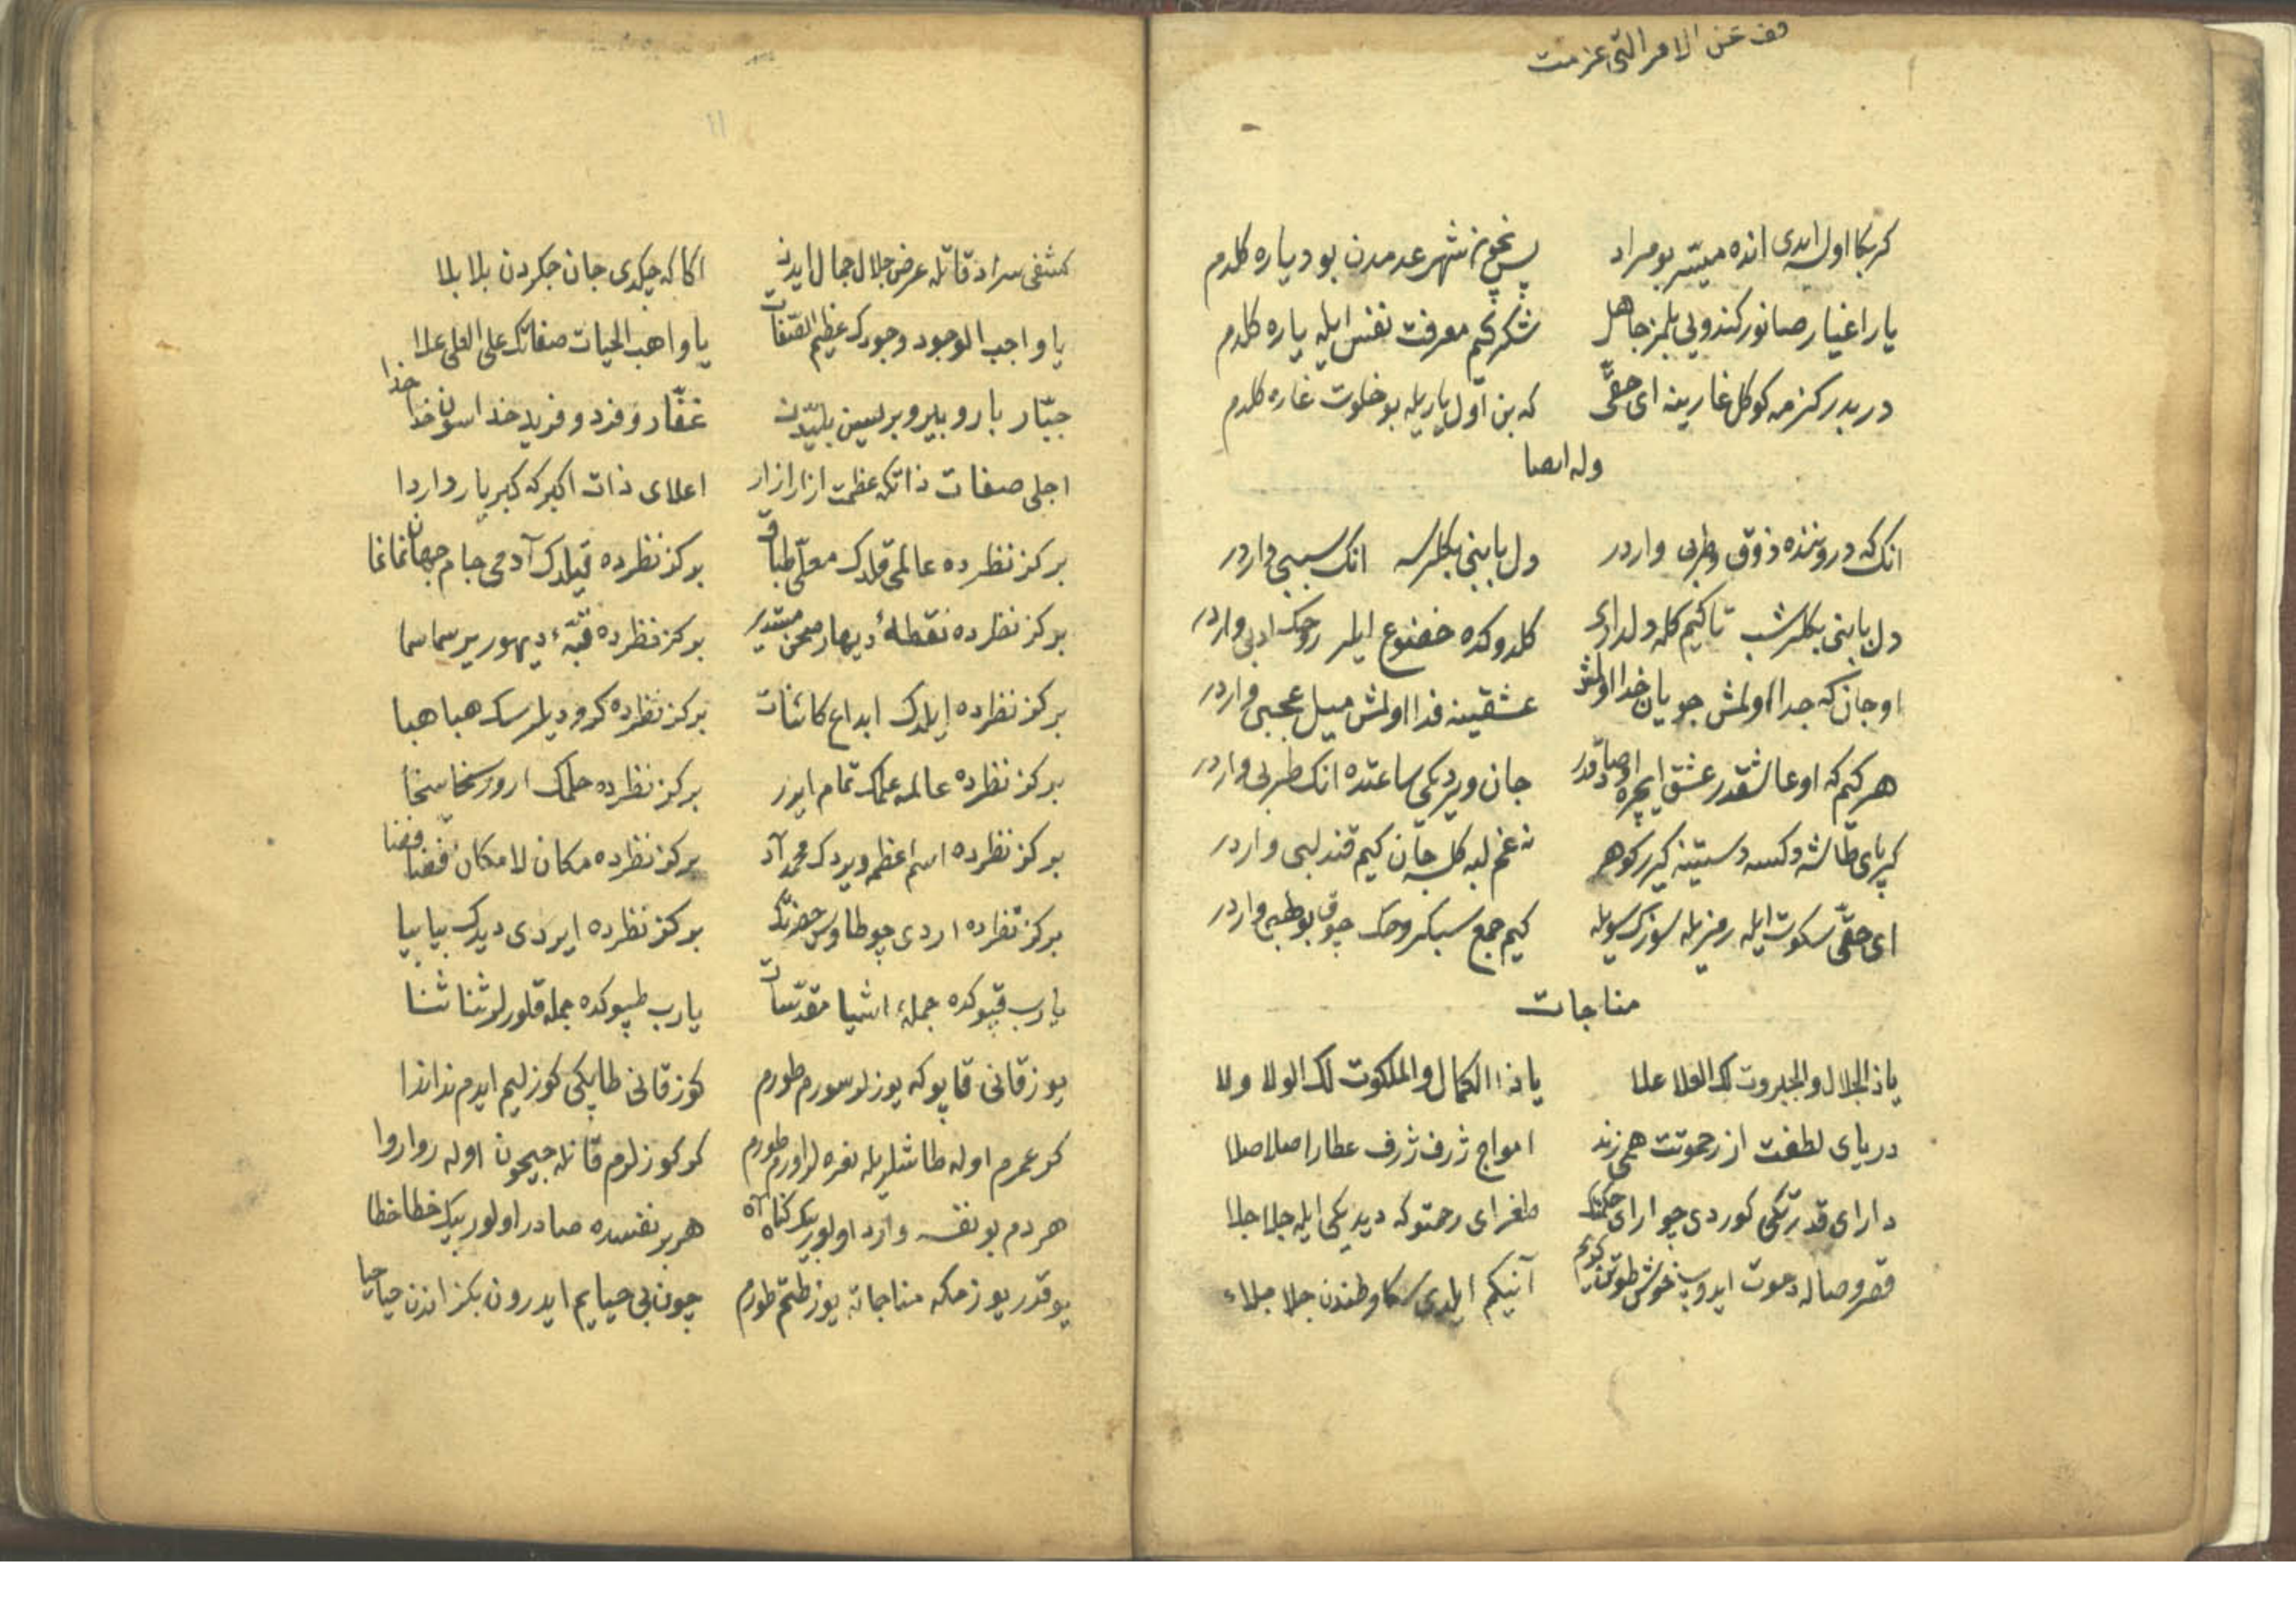 قف عن الامر التى عزمت
كر بكا اول ايدى انده ميسّر بو مراد پس نچون شهر عدمدن بو دياره كلدم
يار اغيار صانور كندويى بلمز جاهل شكر كم معرفت نفس ايله ياره كلدم
در بدر كزمه كوكل غارينه اى حقّى كه بن اول ياريله بو خلوت غاره كلدم
وله ايضا
انك كه دروننده ذوق وطربى واردر دل بابنى بكلرسه انك سببى واردر
دل بابنى بكلر شب تا كيم كله ولدارى كلدوكده خضوع ايلر روحك ادبى واردر
او جان كه جدا اولمش جويان خدا اولمش عشقينه فدا اولمش ميل عجبى واردر
هر كيم كه او عاشقدر عشق ايچره او صادقدر جان ويرديكى ساعتده انك طربى واردر
كر پاى طاشه دكسه دستينه كيرر كوهر نه غم لبه كلسه جان كيم قند لبى واردر
اى حقّى سكوت ايله رمزيله سوزك سويله كيم جمع سبكروحك چوق بو طبى واردر
مناجات
يا ذا الجلال والجبروت لك العلا علا يا ذا الكمال والملكوت لك الولا ولا
درياى لطفت از رحموتت همى زند امواج ژرف ژرف عطارا صلا صلا
داراى قدرتكى كوردى چو اراى حكمتك طغراى رحمتوكه ديديكى ايله جلا جلا
قصر وصاله دعوت ايدوب خوش طوتن كرم آنيكم ايلدى سكا وطندن جلا جلاء
كشفى سراد قاتله عرض جلال جمال ايدن اكا كه چكدى جان جكردن بلا بلا
يا واجب الوجود وجودك عظيم الصّفات يا واهب الحيات صفاتك على العلى علا
جبّار بار و بير و بر سين بليّدن غفّار و فرد و فريد خدا سون خدا خدا
اجلى صفات ذاتكه عظمت ازار ازار اعلاى ذات اكبركه كبريا ردا ردا
بر كز نظرده عالمى قلدك معلّى طباق بر كز نظرده قيلدك آدمى جام جهان نما نما
بر كز نظرده نقطهٔ ديهار صحن مستدير بر كز نظرده قبّهٔ ديهور ير سما سما
بر كز نظرده ايلدك ابداع كائنات بر كز نظرده كرو ديلرسك هبا هبا
بر كز نظرده عالمه علمك تمام ايرر بر كز نظرده حلمك ارور سخا سخا
بر كز نظرده اسم اعظمه ويردك محمد آد بر كز نظرده مكان لا مكان فضا فضا
بر كز نظرده اردى چو طاوس حضرتك بر كز نظرده ايردى ديدك بيا بيا
يا رب قپوكده جملهٔ اشيا مقدّسات يا رب طپوكده جمله قلورلر ثنا ثنا
يوز قانى قاپوكه يوزلر سورم طورم كوز قانى طاپكى كوزليم ايدم ندا ندا
كر عمرم اوله طاشلريله نعره لر اورم طورم كر كوزلرم قانله جيحون اوله روا روا
هر دم بو نفسه وارد اولور بيك كناه آه هر بر نفسده صادر اولور بيك خطا خطا
يوقدر يوزمكه مناجاته يوز طتم طورم چون بى حيايم ايدرون بكز اندن حيا حيا